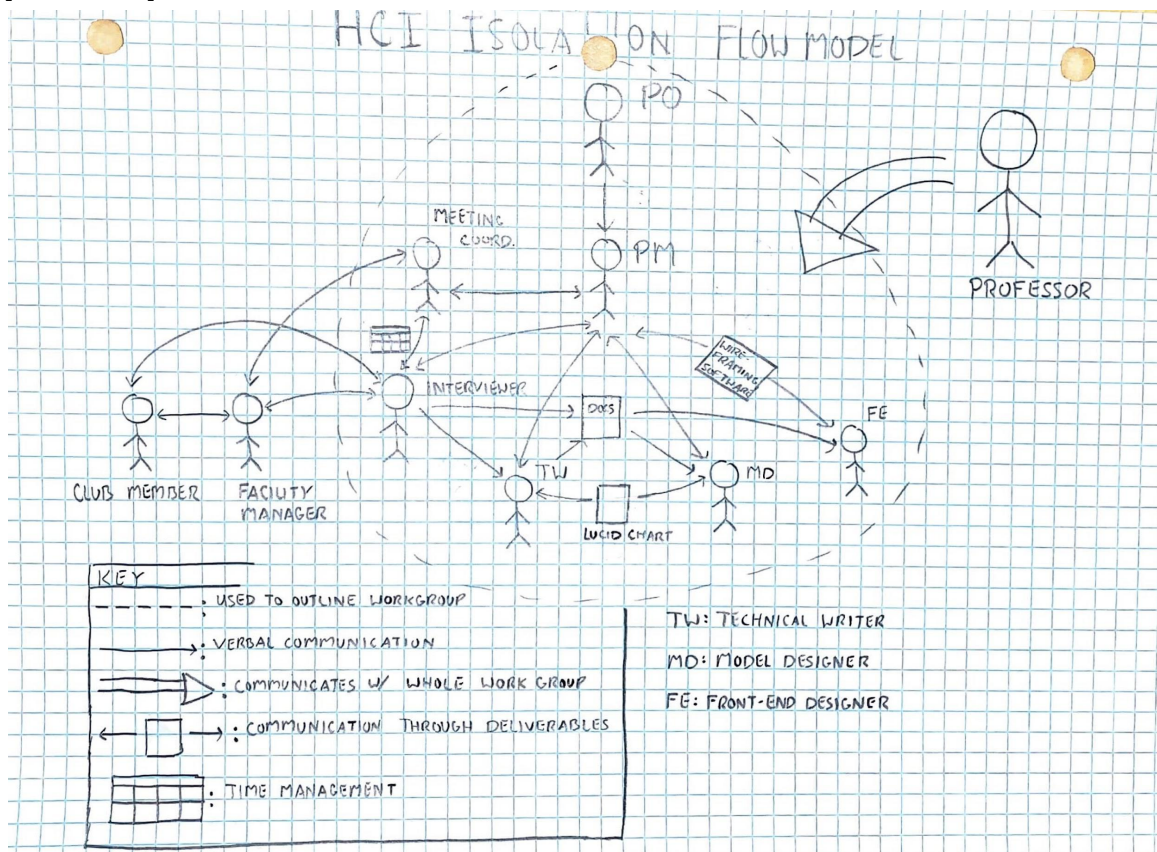 HCI ISOLATION FLOW MODEL
PO
MEETING
COORD.
PM
PROFESSOR
WIRE-
FRAMING
SOFTWARE
INTERVIEWER
DOCS
FE
TW
MD
CLUB MEMBER
FACILITY
MANAGER
LUCID CHART
KEY
: USED TO OUTLINE WORKGROUP
: VERBAL COMMUNICATION
: COMMUNICATES W/ WHOLE WORK GROUP
: COMMUNICATION THROUGH DELIVERABLES
: TIME MANAGEMENT
TW: TECHNICAL WRITER
MD: MODEL DESIGNER
FE: FRONT-END DESIGNER